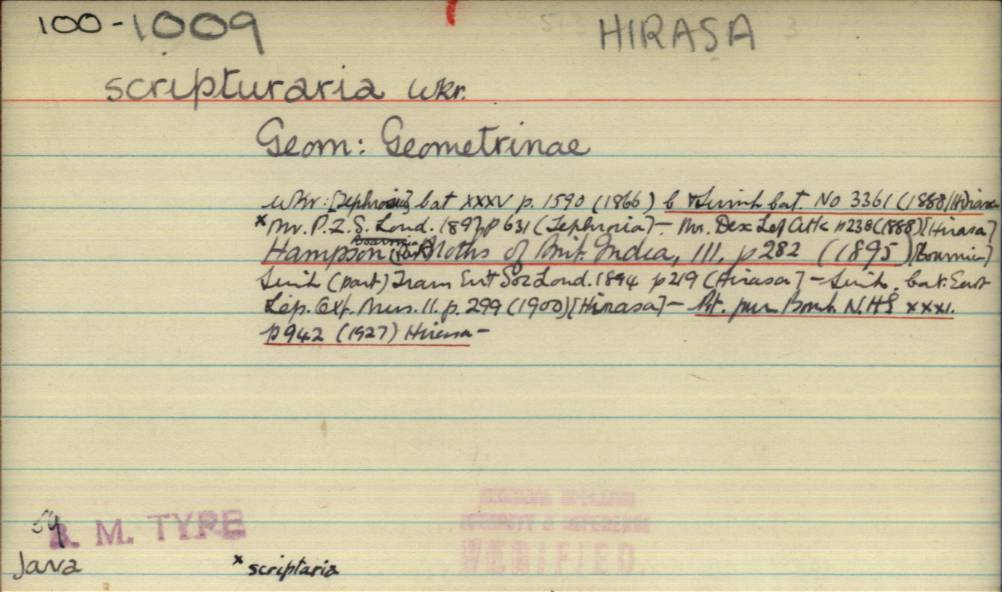 100-1009 HIRASA
scripturaria Wkr.
Geom: Geometrinae
Wkr: [Tephrosia] Cat XXXV p. 1590 (1866) C & Swinh Cat. No 3361 (1888) [Hirasa
*Mr. P.Z.S. Lond. 1897 p 631 (Tephrosia) - Mr. Dex Lep Atk p 238 (1888) [Hirasa]
Hampson (Boarmia Part) Moths of Brit. India, III, p 282 (1895) [Boarmia]
Swinh (part) Trans Ent Soc Lond. 1894 p 219 (Hirasa] - Swinh. Cat. East
Lep. Oxf. Mus. II. p. 299 (1900) [Hirasa] - Bomb N.H.S XXXI.
p 942 (1927) Hirasa -
B. M. TYPE
VERIFIED.
Java *scriptaria